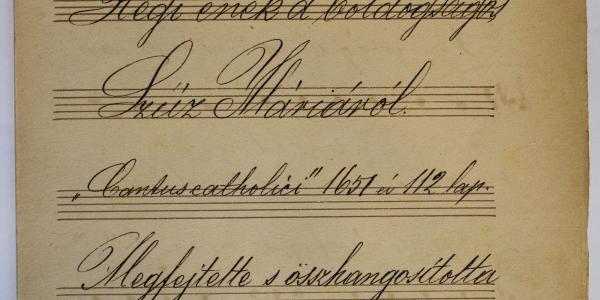 Régi ének a boldogságos
Szűz Máriáról.
„Cantus catholici" 1651 év 112 lap.
Megfejtette s összhangosította